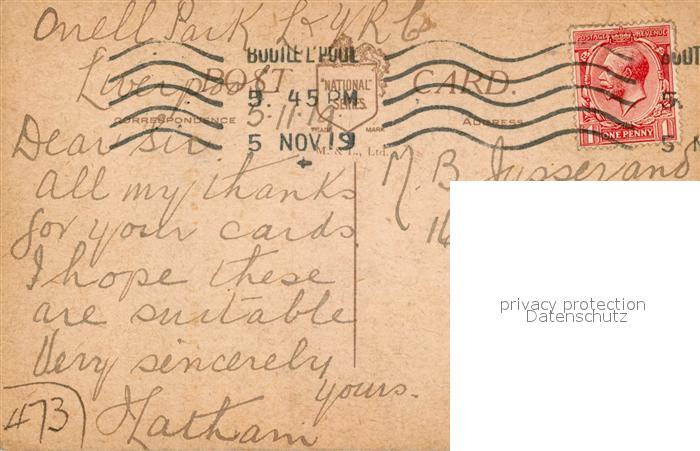 Orrell Park L & Y R C
Liverpool
BOOTLE L'POOL
3. 45 PM
5 NOV 19
POST CARD.
"NATIONAL"
SERIES.
TRADE MARK
M. & L., Ltd.
CORRESPONDENCE
ADDRESS
POSTAGE REVENUE
1 ONE PENNY 1
BOOTL
5 N
5-11-19
Dear Sir
All my thanks
for your cards
I hope these
are suitable
Very sincerely
yours.
Latham
473
M. B. Jusserand
privacy protection
Datenschutz